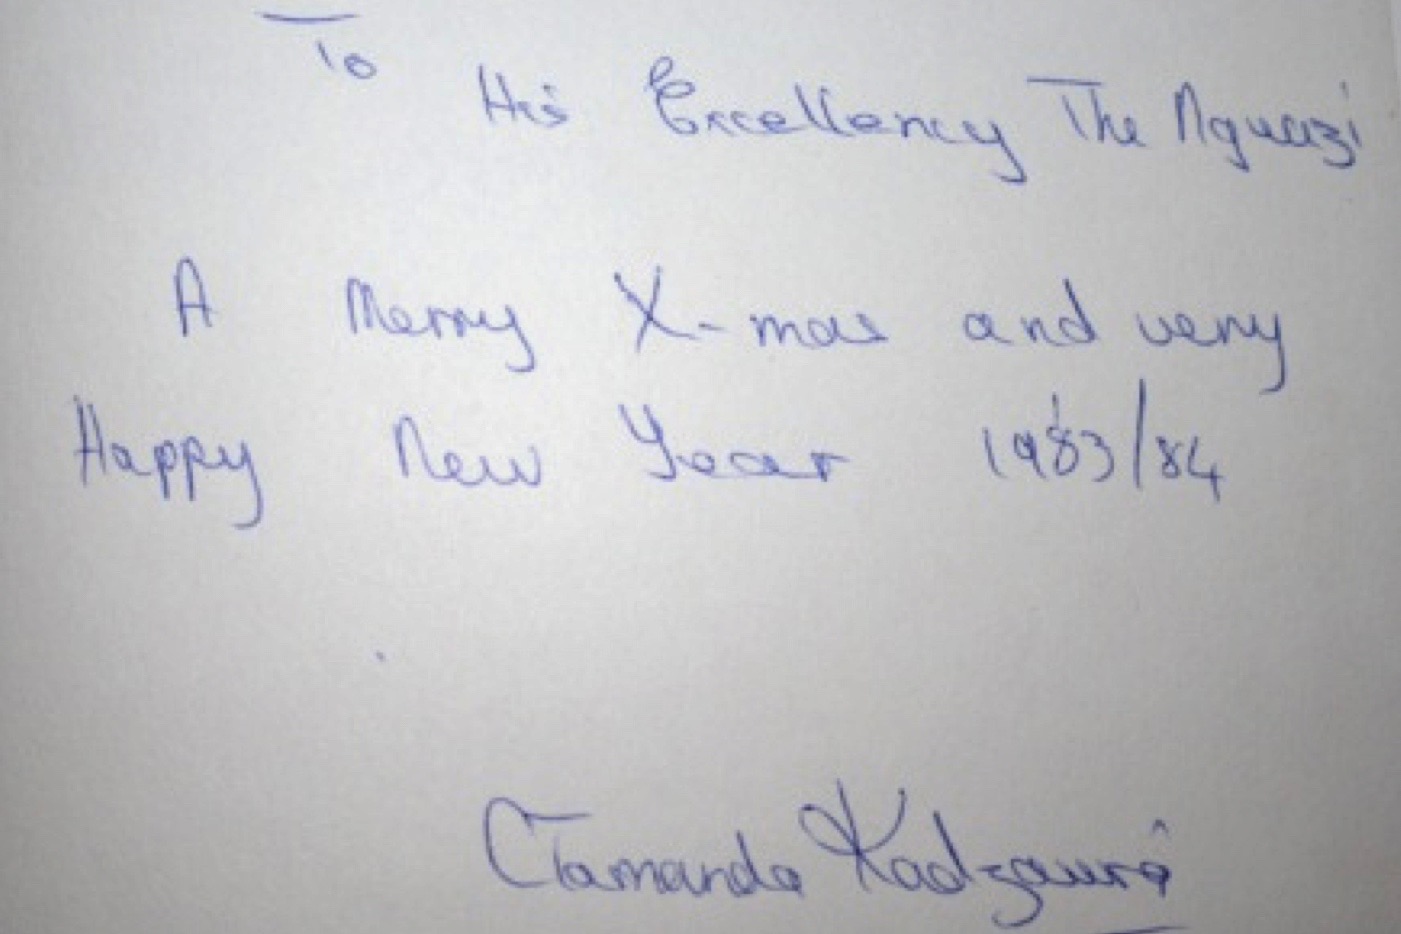 To
His Excellency The Ngwazi
A Merry X-mas and very
Happy New Year 1983/84
CTamanda Kadzamira